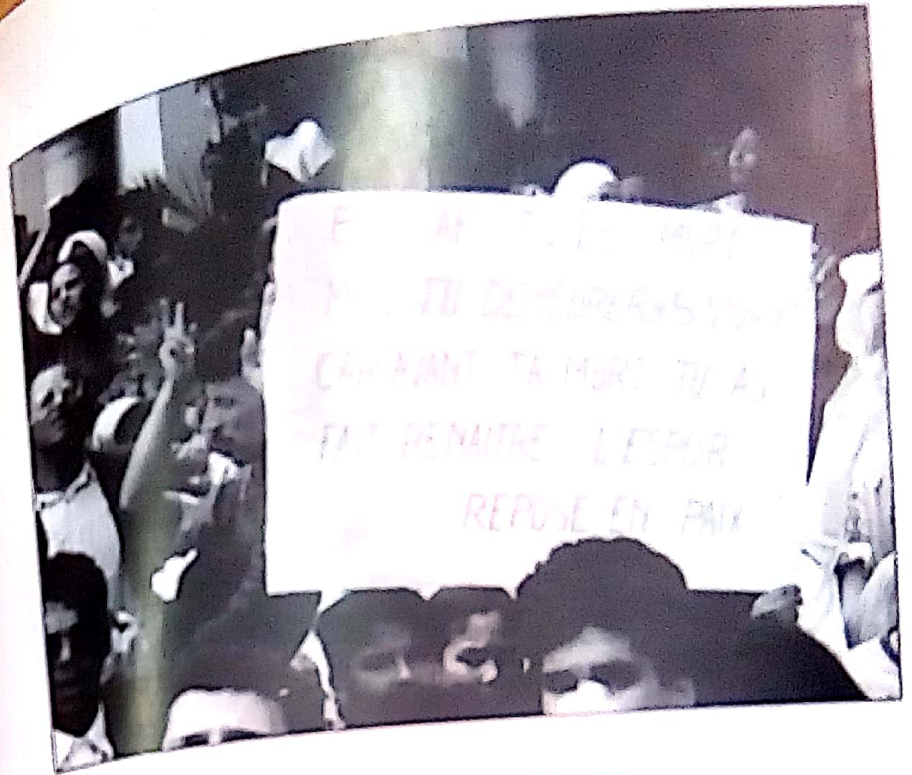 TU ES MORT
TU DEMEURERAS
CAR AVANT TA MORT TU AS
FAIT RENAITRE L'ESPOIR
REPOSE EN PAIX